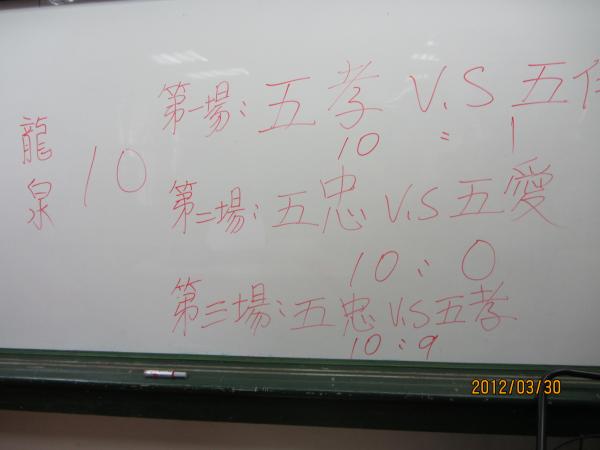 龍泉
10
第一場:五孝 V.S 五
10 : 1
第二場:五忠 V.S 五愛
10 : 0
第三場:五忠 V.S 五孝
10 : 9
2012/03/30